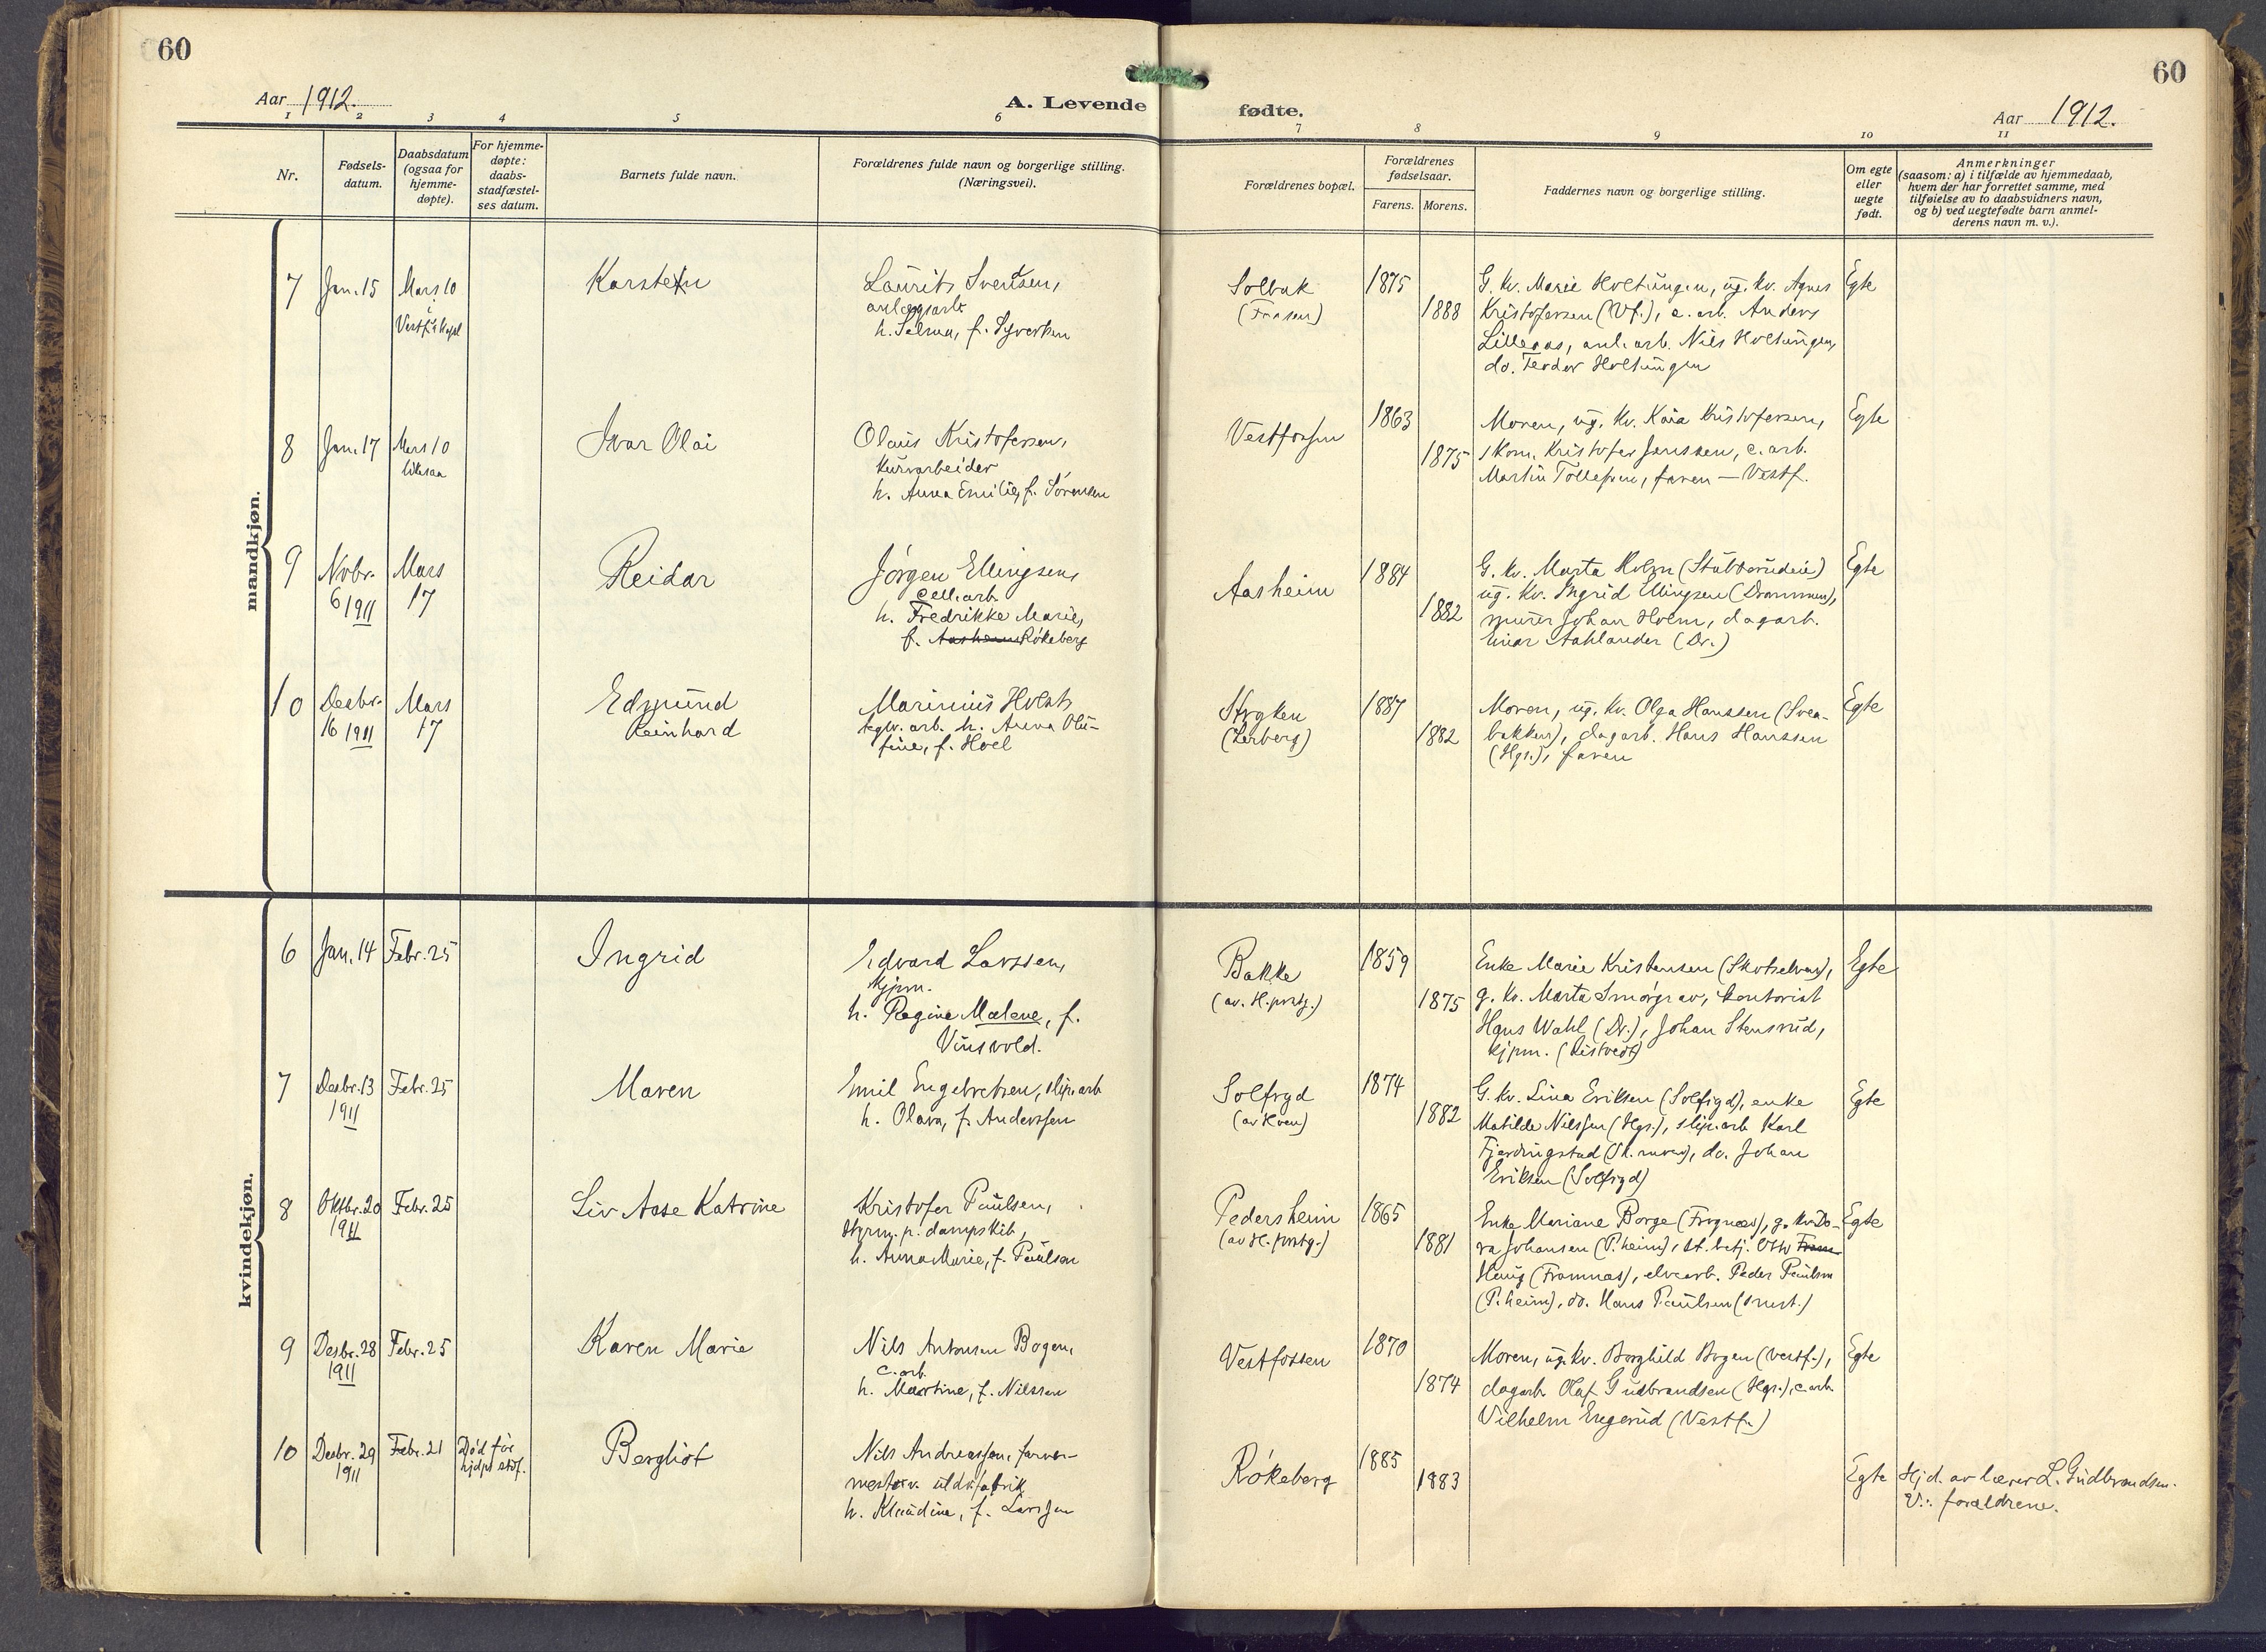 60
60
Aar 1912.
A. Levende
fødte.
Aar 1912.
1
2
3
4
5
6
7
8
9
10
11
Nr.
Fødsels-
datum.
Daabsdatum
(ogsaa for
hjemme-
døpte).
For hjemme-
døpte:
daabs-
stadfæstel-
ses datum.
Barnets fulde navn.
Forældrenes fulde navn og borgerlige stilling.
(Næringsvei).
Forældrenes bopæl.
Forældrenes
fødselsaar.
Farens.
Morens.
Faddernes navn og borgerlige stilling.
Om egte
eller
uegte
født.
Anmerkninger
(saasom: a) i tilfælde av hjemmedaab,
hvem der har forrettet samme, med
tilføielse av to daabsvidners navn,
og b) ved uegtefødte barn anmel-
derens navn m. v.).
mandkjøn.
7
Jan. 15
Mars 10
i
Vestf. kapel
Karsten
Laurits Svendsen,
anlægsarb.
h. Selma, f. Syvertsen
Solbak
(Fosen)
1875
1888
G. kv. Marie Holtungen, ug. kv. Agnes
Kristofersen (Vf.), c. arb. Anders
Lilleaas, anl. arb. Nils Holtungen,
do. Teodor Holtungen
Egte
8
Jan. 17
Mars 10
likesaa
Ivar Olai
Olaus Kristofersen,
kurvarbeider
h. Anna Emilie, f. Sørensen
Vestfossen
1863
1875
Moren, ug. kv. Kaia Kristofersen,
skom. Kristofer Janssen, c. arb.
Martin Tollefsen, faren — Vestf.
Egte
9
Nvbr.
6 1911
Mars
17
Reidar
Jørgen Ellingsen,
cell. arb.
h. Fredrikke Marie,
f. Aasheim Røkeberg
Aasheim
1884
1882
G. kv. Marta Holm (Stubberudeie)
ug. kv. Ingrid Ellingsen (Drammen),
murer Johan Holm, dagarb.
Einar Aahlander (Dr.)
Egte
10
Desbr.
16 1911
Mars
17
Edmund
Reinhard
Marinius Holst,
teglv. arb. h. Anna Olu-
fine, f. Hoel
Stryken
(Lerberg)
1887
1882
Moren, ug. kv. Olga Hanssen (Svea-
bakken), dagarb. Hans Hanssen
(Hgs.), faren
Egte
kvindekjøn.
6
Jan. 14
Febr. 25
Ingrid
Edvard Larssen,
kjpm.
h. Regine Malene, f.
Vinsvold.
Bakke
(av. H. prstg.)
1859
1875
Enke Marie Kristensen (Skotselven),
g. kv. Marta Smørgrav, kontorist
Hans Wahl (Dr.), Johan Stensrud,
kjpm. (Ristvedt)
Egte
7
Desbr. 13
1911
Febr. 25
Maren
Emil Engebretsen, slip. arb
h. Olava, f. Anderssen
Solfryd
(av Hven)
1874
1882
G. kv. Lina Eriksen (Solfryd), enke
Matilde Nilssen (Hgs.), slip. arb Karl
Fjerdingstad (Sk. muren), do. Johan
Eriksen (Solfryd)
Egte
8
Oktbr. 20
1911
Febr. 25
Liv Aase Katrine
Kristofer Paulsen,
styrm. p. dampskib,
h. Anna Marie, f. Paulsen
Pedersheim
(av H. prstg.)
1865
1881
Enke Mariane Borge (Frognæs), g. kv. Do-
ra Johansen (P. heim), st. betj. Otto
Haug (Framnæs), elvearb. Peder Paulsen
(P. heim), do. Hans Paulsen
Egte
9
Desbr. 28
1911
Febr. 25
Karen Marie
Nils Antonsen Bogen,
c. arb.
h. Martine, f. Nilssen
Vestfossen
1870
1874
Moren, ug. kv. Borghild Bogen (Vestf.),
dagarb Olaf Gudbrandsen (Hgs.), c. arb.
Vilhelm Engerud (Vestf.)
Egte
10
Desbr. 29
1911
Febr. 21
Død før
hjdps stdf.
Bergliot
Nils Andreassen, farver-
mester v. uldv.fabrik
h. Klaudine, f. Larssen
Røkeberg
1885
1883
Egte
Hj. d. av lærer L. Gudbrandsen.
V.: forældrene.